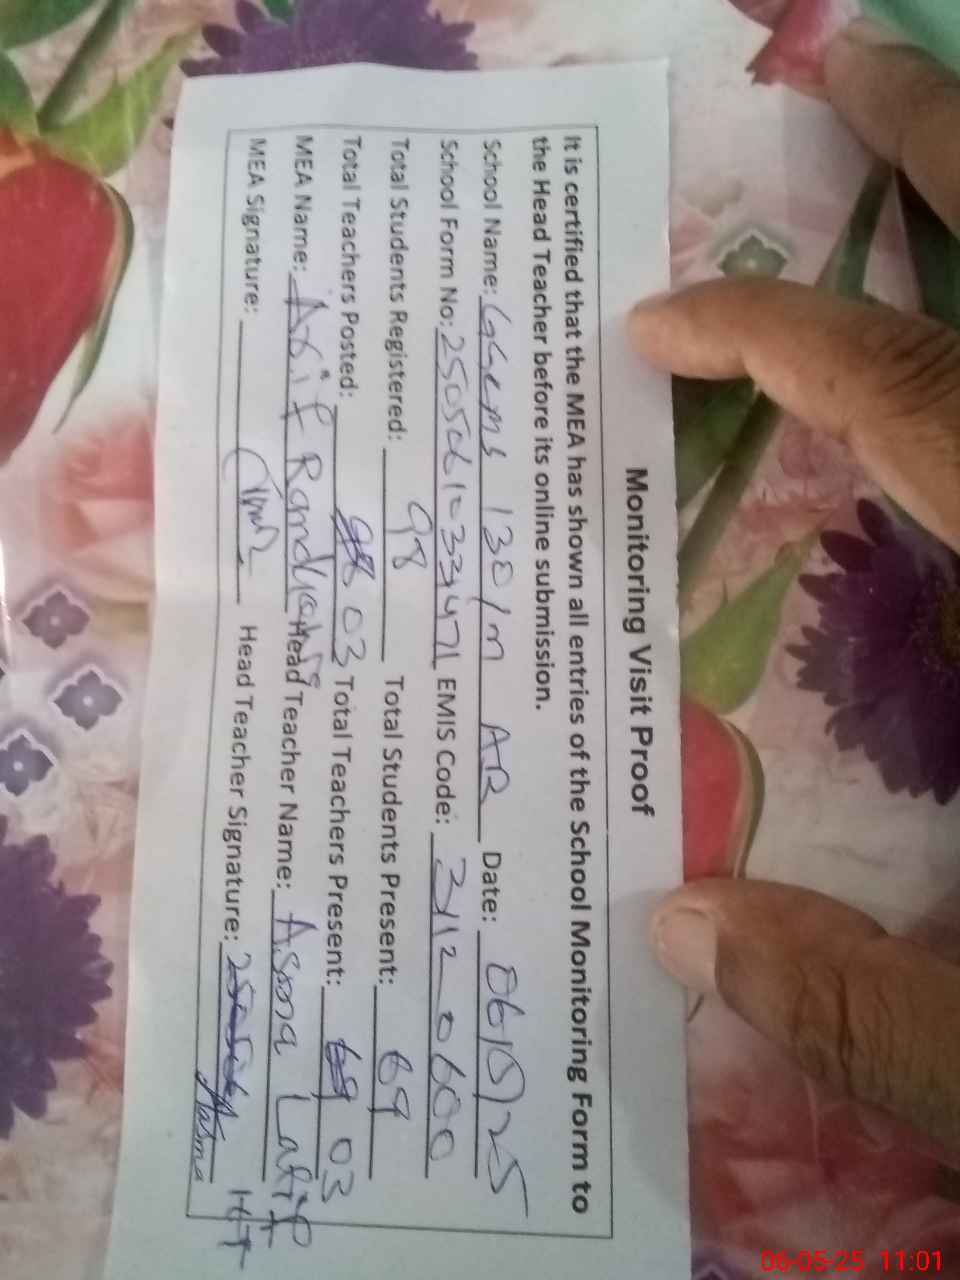 Monitoring Visit Proof
It is certified that the MEA has shown all entries of the School Monitoring Form to
the Head Teacher before its online submission.
School Name: GGEMS 130/m AR Date: 06/05/25
School Form No: EMIS Code: 31120600
Total Students Registered: 98 Total Students Present: 69
Total Teachers Posted: 03 Total Teachers Present: 03
MEA Name: Asif Randhawa Head Teacher Name: Asma Latif
MEA Signature: Head Teacher Signature: Asma H-T
06-05-25 11:01